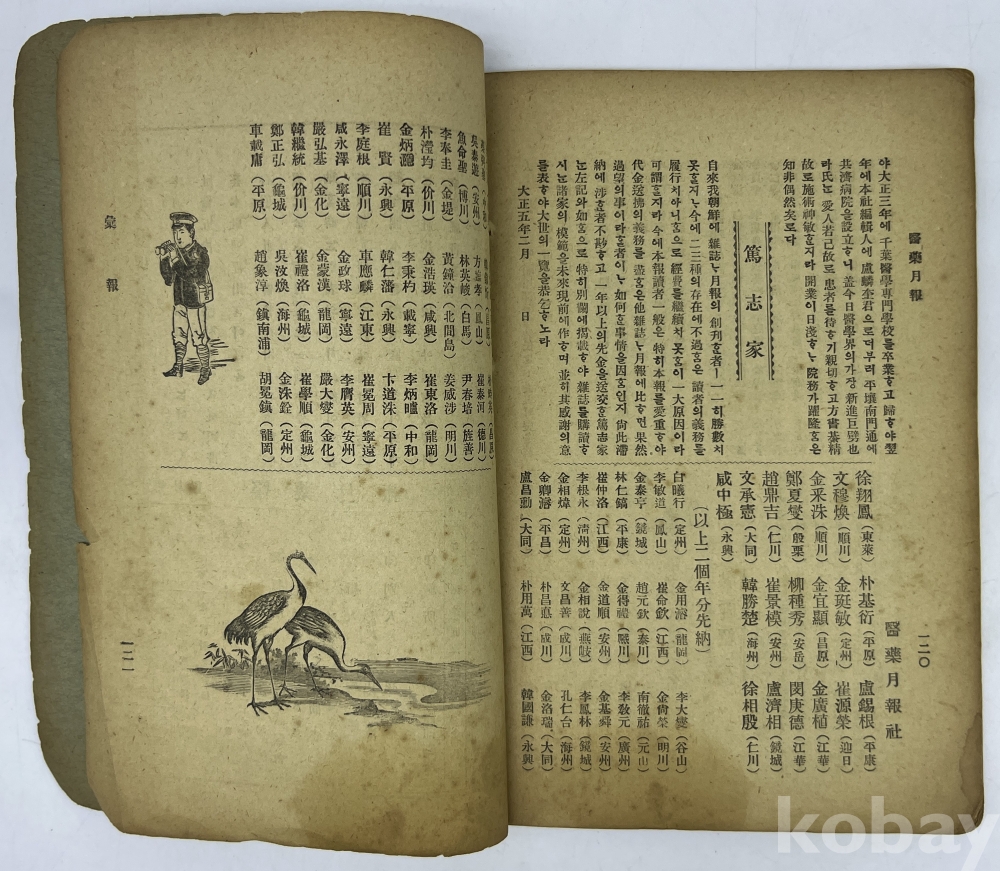 醫藥月報
一二〇
야大正三年에千葉醫學專門學校를卒業ᄒᆞ고歸ᄒᆞ야翌
年에本社編輯人에盧麟奎君으로더부러平壤南門通에
共濟病院을設立ᄒᆞ니盖今日醫學界의가장新進巨擘也
라氏ᄂᆞᆫ愛人若己故로患者를待ᄒᆞ기親切ᄒᆞ고方書綦精
故로施術神敏ᄒᆞᆯ지라開業이日淺ᄒᆞᄂᆞ院務가躍隆ᄒᆞᆷ은
知非偶然矣로다
篤志家
自來我朝鮮에雜誌ᄂᆞ月報의創刊ᄒᆞᆫ者ㅣ一一히勝數치
못ᄒᆞᆯ지ᄂᆞ今에二三種의存在에不過ᄒᆞᆷ은讀者의義務를
履行치아니ᄒᆞᆷ으로經費를繼續치못ᄒᆞᆷ이一大原因이라
可謂ᄒᆞᆯ지라今에本報讀者一般은特히本報를愛重ᄒᆞ야
代金送拂의義務를盡ᄒᆞᆷ은他雜誌ᄂᆞ月報에比ᄒᆞ면果然
過望의事이라ᄒᆞᆯ者이ᄂᆞ如何ᄒᆞᆫ事情을因ᄒᆞᆷ인지尙此滯
納에涉ᄒᆞᆫ者不尠ᄒᆞ고一年以上의先金을送交ᄒᆞᆫ篤志家
ᄂᆞᆫ左記와如ᄒᆞᆷ으로特히別欄에揭載ᄒᆞ야雜誌를購讀ᄒᆞ
시ᄂᆞᆫ諸家의模範을未來現前에作ᄒᆞ며並히其感謝의意
를表ᄒᆞ야大世의一覽을恭乞ᄒᆞ노라
大正五年二月 日
醫藥月報社
徐翔鳳(東萊) 朴基衍(平原) 盧錫根(平康)
文穆煥(順川) 金珽敏(定州) 崔源榮(迎日)
金釆洙(順川) 金宜顯(昌原) 金廣植(江華)
鄭夏燮(殷栗) 柳種秀(安岳) 閔庚德(江華)
趙鼎吉(仁川) 崔景模(安州) 盧濟相(鏡城)
文承憲(大同) 韓勝楚(海州) 徐相殷(仁川)
咸中極(永興)
(以上二個年分先納)
白曦行(定州) 金用濬(龍岡) 李大燮(谷山)
李敏道(鳳山) 崔命欽(江西) 金尙榮(明川)
金泰亨(鏡城) 趙元欽(泰川) 南徹祐(元山)
林仁鎬(平康) 金得禮(熙川) 李敎元(廣州)
崔仲洛(江西) 金道順(安州) 金基舜(安州)
李根永(淸州) 金相說(燕岐) 李鳳林(鏡城)
金相燁(定州) 文昌善(成川) 孔仁台(海州)
金卿濬(平昌) 朴昌悳(成川) 金洛瑞(大同)
盧昌勳(大同) 朴用萬(江西) 韓國謙(永興)
彙報
一二一
吳泰遊(安州) 方 孝(鳳山) 崔泰河(德川)
魚命聖(博川) 林英峻(白馬) 尹春培(旌善)
李奉圭(金堤) 黃鐘洽(北間島) 姜威涉(明川)
朴瀅均(价川) 金浩瑛(咸興) 崔東洛(龍岡)
金炳聽(平原) 李秉杓(載寧) 李炳曥(中和)
崔賢(永興) 韓仁藩(永興) 卞道洙(平原)
李庭根(順川) 車應麟(江東) 崔冕周(寧遠)
咸永澤(寧遠) 金政球(寧遠) 李膺英(安州)
嚴弘基(金化) 金蒙漢(龍岡) 嚴大燮(金化)
韓繼統(价川) 崔禮洛(龜城) 崔學順(龜城)
鄭正弘(龜城) 吳汶煥(海州) 金洙銓(定州)
車載庸(平原) 趙象淳(鎭南浦) 胡冕鎭(龍岡)
kobay